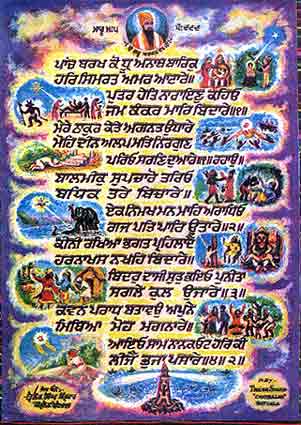 ਮਾਰੂ ਮਹਲਾ
ਪਾਂਚ ਬਰਖ ਕੋ ਅਨਾਥ ਧ੍ਰੂ ਬਾਰਿਕ
ਹਰਿ ਸਿਮਰਤ ਅਮਰ ਅਟਾਰੇ॥
ਪੁਤਰ ਹੇਤਿ ਨਾਰਾਇਣੁ ਕਹਿਓ
ਜਮ ਕੰਕਰ ਮਾਰਿ ਬਿਦਾਰੇ॥੧॥
ਮੇਰੇ ਠਾਕੁਰ ਕੇਤੇ ਅਗਨਤ ਉਧਾਰੇ
ਮੋਹਿ ਦੀਨ ਅਲਪ ਮਤਿ ਨਿਰਗੁਣ
ਪਰਿਓ ਸਰਣਿ ਦੁਆਰੇ॥੧॥ ਰਹਾਉ॥
ਬਾਲਮੀਕੁ ਸੁਪਚਾਰੋ ਤਰਿਓ
ਬਧਿਕ ਤਰੇ ਬਿਚਾਰੇ॥
ਏਕ ਨਿਮਖ ਮਨ ਮਾਹਿ ਅਰਾਧਿਓ
ਗਜ ਪਤਿ ਪਾਰਿ ਉਤਾਰੇ॥੨॥
ਕੀਨੀ ਰਖਿਆ ਭਗਤ ਪ੍ਰਹਿਲਾਦੈ
ਹਰਨਾਖਸ ਨਖਹਿ ਬਿਦਾਰੇ॥
ਬਿਦਰੁ ਦਾਸੀ ਸੁਤ ਭਇਓ ਪੁਨੀਤਾ
ਸਗਲੇ ਕੁਲ ਉਜਾਰੇ॥੩॥
ਕਵਨ ਪਰਾਧ ਬਤਾਵਉ ਅਪੁਨੇ
ਮਿਥਿਆ ਮੋਹ ਮਗਨਾਰੇ॥
ਆਇਓ ਸਾਮ ਨਾਨਕ ਓਟ ਹਰਿ ਕੀ
ਲੀਜੈ ਭੁਜਾ ਪਸਾਰੇ॥੪॥੨॥